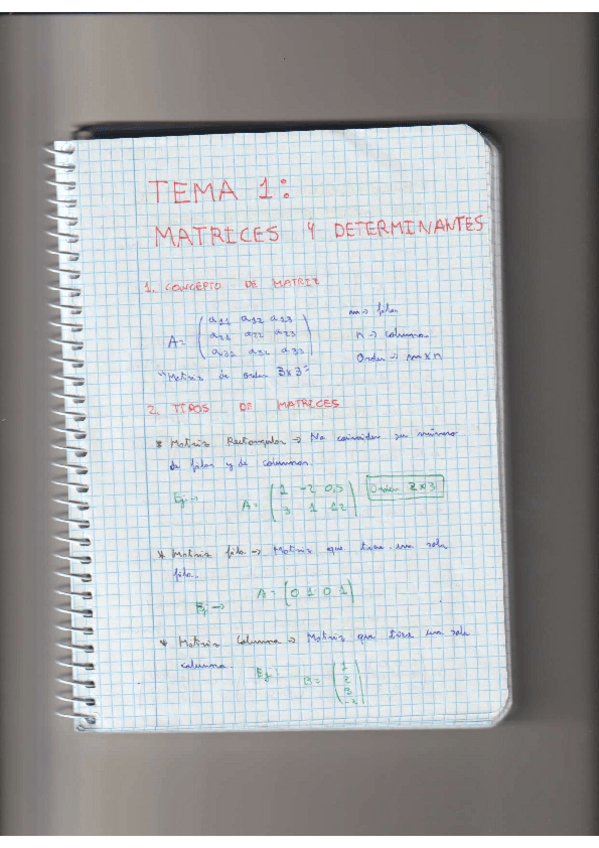 TEMA 1:
MATRICES Y DETERMINANTES
1. CONCEPTO DE MATRIZ
A = ( a11 a12 a13
a21 a22 a23
a31 a32 a33 )
m → filas
n → columnas
Orden → m x n
"Matriz de orden 3x3"
2. TIPOS DE MATRICES
* Matriz Rectangular → No coinciden su número
de filas y de columnas.
Ej → A = ( 1 -2 0,5
3 1 12 ) Orden 2x3
* Matriz fila → Matriz que tiene una sola
fila.
Ej → A = ( 0 1 0 1 )
* Matriz Columna → Matriz que tiene una sola
columna.
Ej B = ( 1
2
3
-2 )